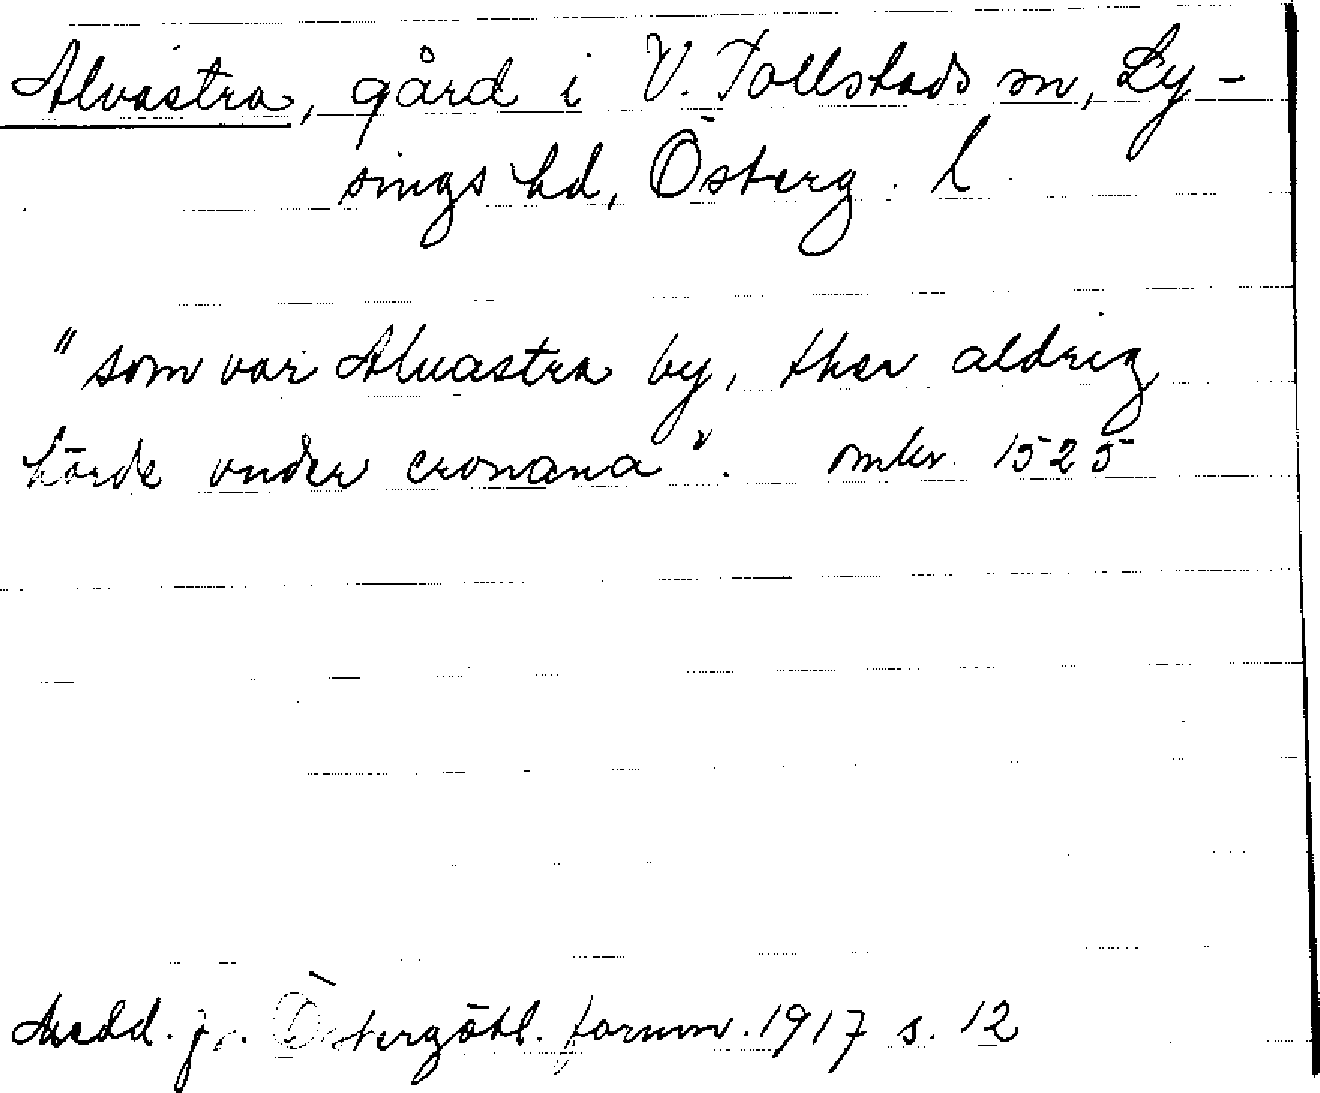 Alvastra, gård i V. Tollstads sn, Ly-
sings hd, Österg. l.
"som var Aluastra by, ther aldrig
hörde vnder cronona". omkr. 1525
Medd. fr. Östergötl. fornm. 1917 s. 12